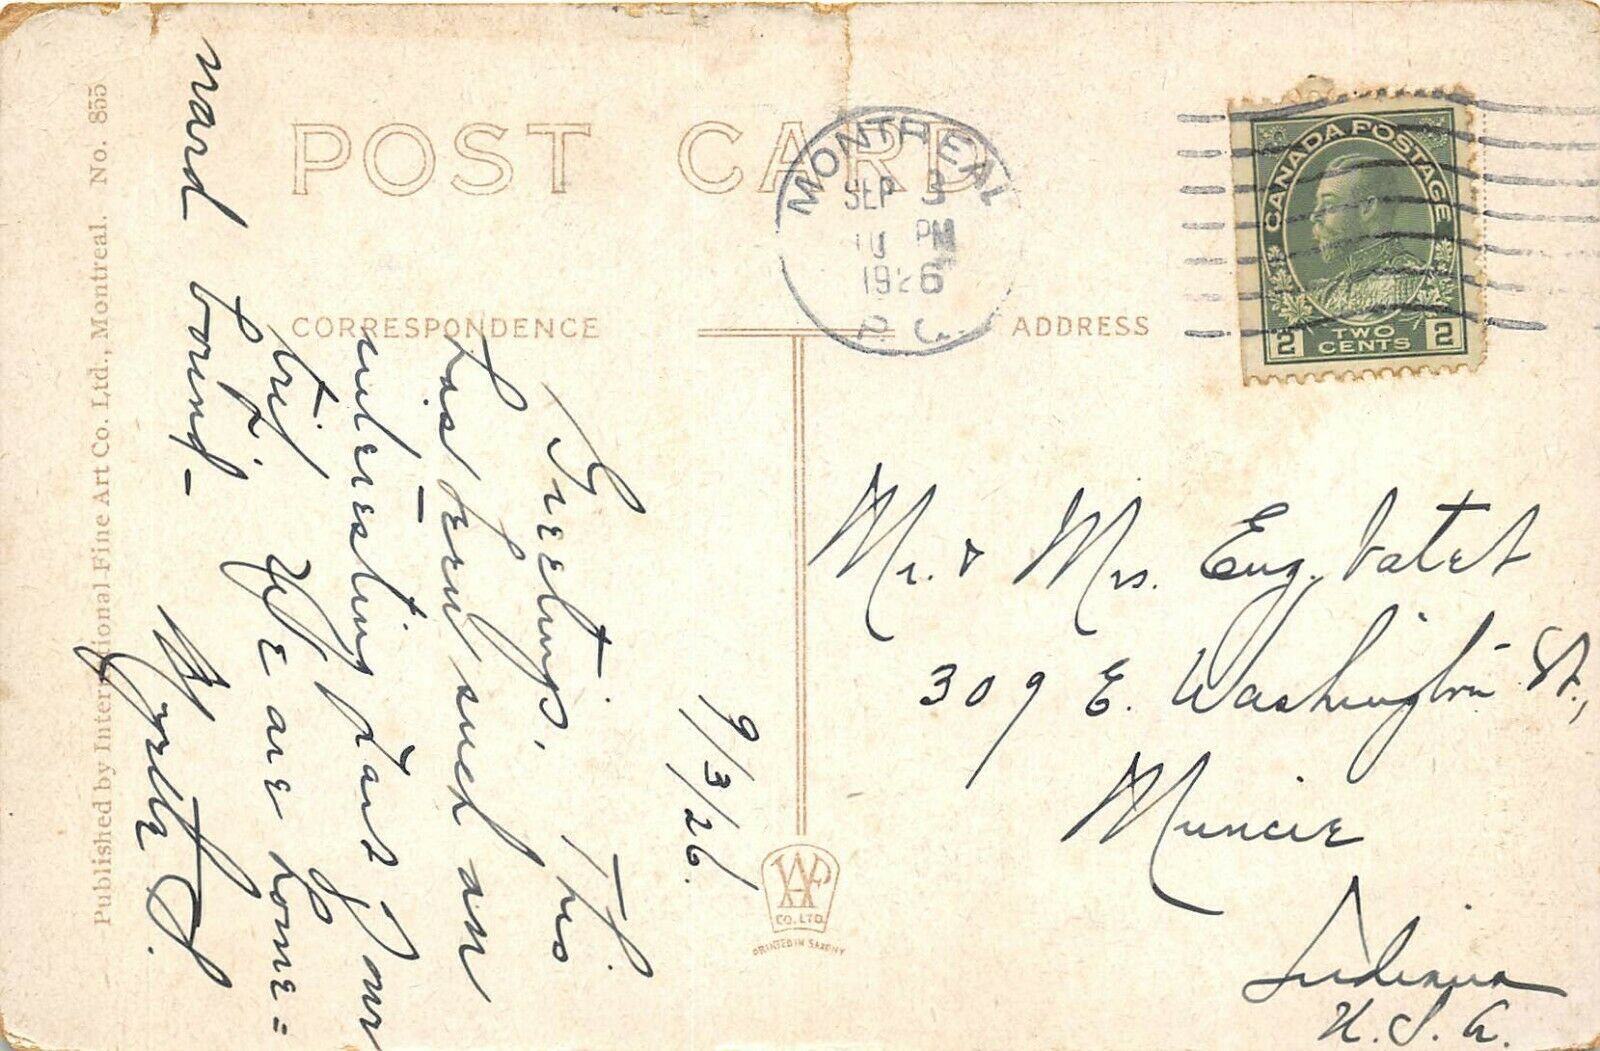 POST CARD
CORRESPONDENCE
ADDRESS
MONTREAL
SEP 3
PM
1926
P. Q.
CANADA POSTAGE
2 TWO CENTS 2
9/3/26.
Greetings. This
has been such an
interesting part of our
trip. We are home=
ward bound-
Myrtle S.
Mr. & Mrs. Eug. Vatet
309 E. Washington St.,
Muncie
Indiana
U.S.A.
WAP
CO. LTD.
PRINTED IN SAXONY
Published by International Fine Art Co. Ltd., Montreal. No. 855